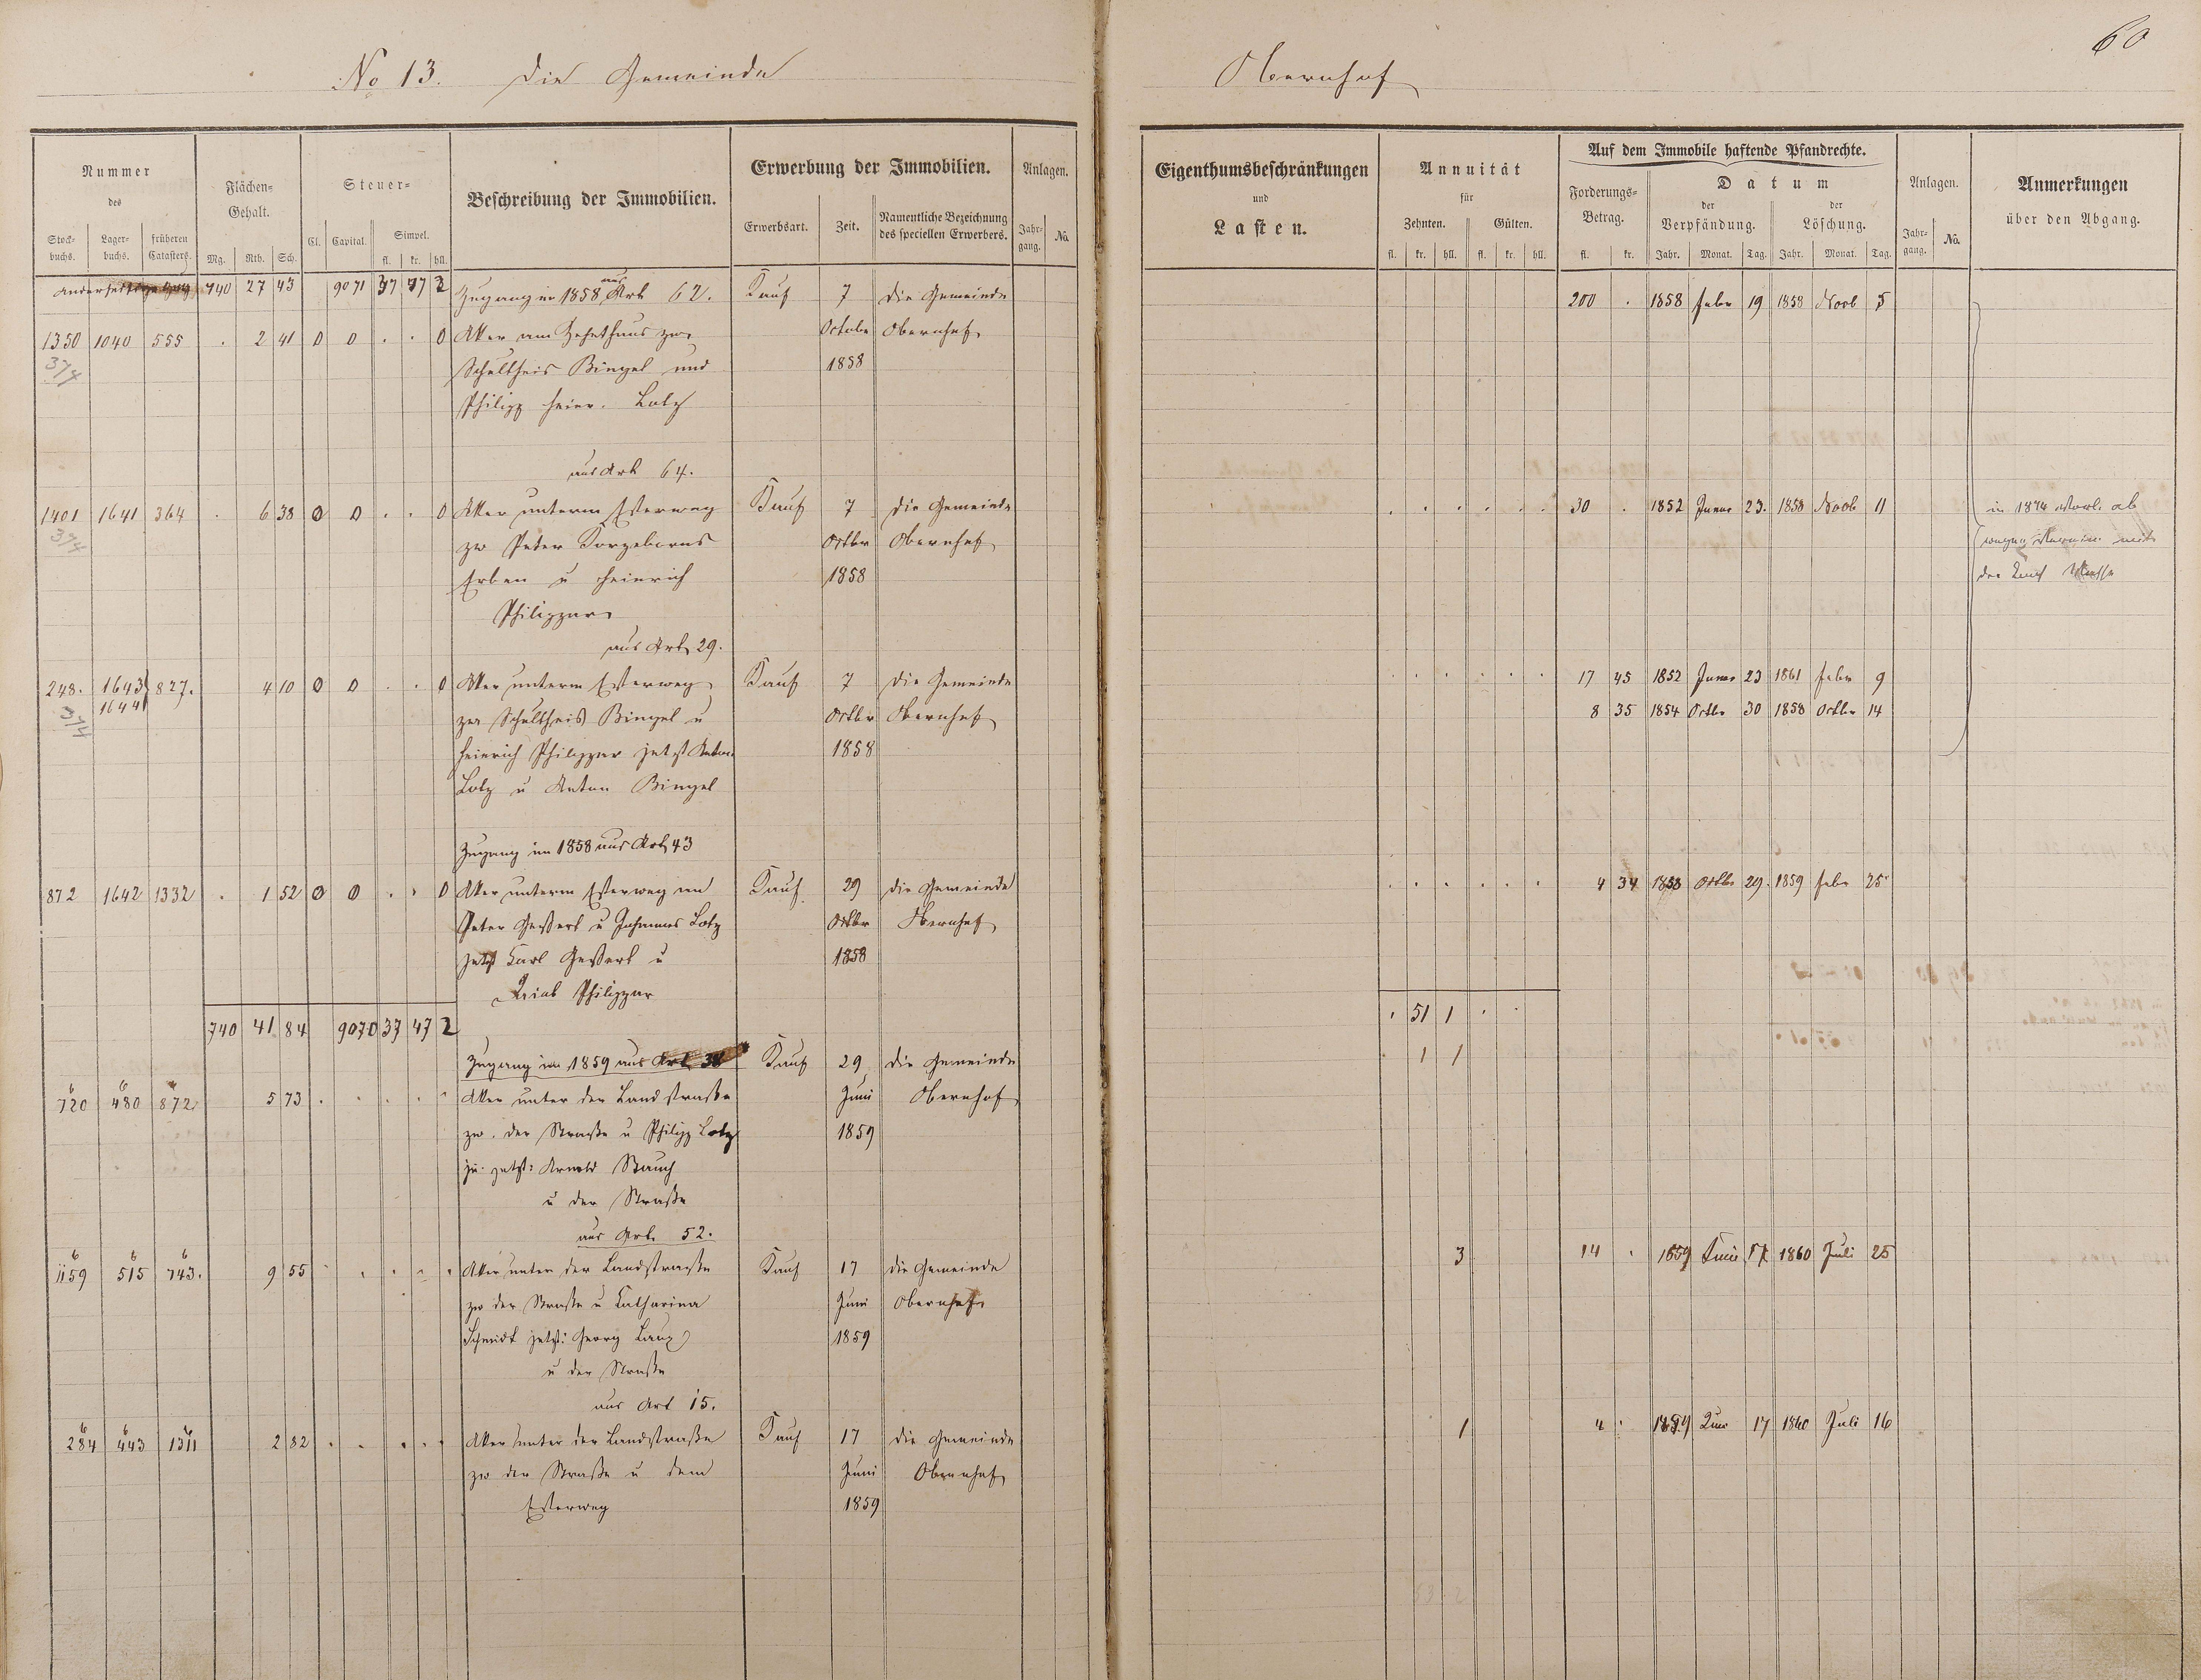 60
No 13. Die Gemeinde Obernhof
Nummer des
Stockbuchs. Lagerbuchs. früheren Catasters.
Flächen-Gehalt.
Mg. Rth. Sch.
Steuer-
Cl. Capital. Simpel.
fl. kr. hll.
Beschreibung der Immobilien.
Erwerbung der Immobilien.
Erwerbsart. Zeit. Namentliche Bezeichnung des speciellen Erwerbers.
Anlagen.
Jahrgang. No.
Eigenthumsbeschränkungen
und
Lasten.
Annuität
für
Zehnten. Gülten.
fl. kr. hll. fl. kr. hll.
Auf dem Immobile haftende Pfandrechte.
Forderungs-Betrag.
fl. kr.
Datum
der Verpfändung. der Löschung.
Jahr. Monat. Tag. Jahr. Monat. Tag.
Anlagen.
Jahrgang. No.
Anmerkungen
über den Abgang.
740 27 43 9071 37 47 2 Zugang in 1858 aus Art 62. Kauf 7 die Gemeinde 200 . 1858 Febr 19 1858 Novb 5
1350 1040 555 . 2 41 0 0 . . 0 Aker am Zehnthaus zw. Octobr Obernhof
374 Schultheis Bingel und 1858
Philipp Heinr. Lotz
aus Art 64.
1401 1641 364 . 6 38 0 0 . . 0 Aker unterm Esterweg Kauf 7 die Gemeinde 30 . 1852 Januar 23. 1858 Novb 11 in 1874 ab
374 zw Peter Octbr Obernhof wegen
Erben u Heinrich 1858 der
Philippar
aus Art 29.
248. 1643 827. 4 10 0 0 . . 0 Aker unterm Esterweg Kauf 7 die Gemeinde 17 45 1852 Januar 23 1861 Febr 9
1644
374 zw Schultheis Bingel u Octbr Obernhof 8 35 1854 Octbr 30 1858 Octbr 14
Heinrich Philippar jetzt Anton 1858
Lotz u Anton Bingel
Zugang im 1858 aus Art 43
872 1642 1332 . 1 52 0 0 . . 0 Aker unterm Esterweg an Kauf. 29 die Gemeinde 4 34 1858 Octbr 29. 1859 Febr 25
Peter Geßert u Johannes Lotz Octbr Obernhof
jetzt Karl Geßert u 1858
Philippar
740 41 84 9070 37 47 2 . 51 1 . .
Zugang im 1859 aus Art 38 Kauf 29 die Gemeinde . 1 1
6 6 6
720 480 872 5 73 . . . . . Aker unter der Landstraße Juni Obernhof
zw. der Straße u Philipp Lotz 1859
jetzt: Arnold Stauch
u der Straße
aus Art. 52.
6 6 6
1159 515 743. 9 55 . . . . . Aker unter der Landstraße Kauf 17 die Gemeinde 3 14 . 1859 Juni 17 1860 Juli 25
zw der Straße u Catharina Juni Obernhof
Schmidt jetzt: Georg Laux 1859
u der Straße
aus Art 15.
6 6 6
284 443 1311 2 82 . . . . . Aker unter der Landstraße Kauf 17 die Gemeinde 1 4 . 1859 Juni 17 1860 Juli 16
zw der Straße u dem Juni Obernhof
Esterweg 1859